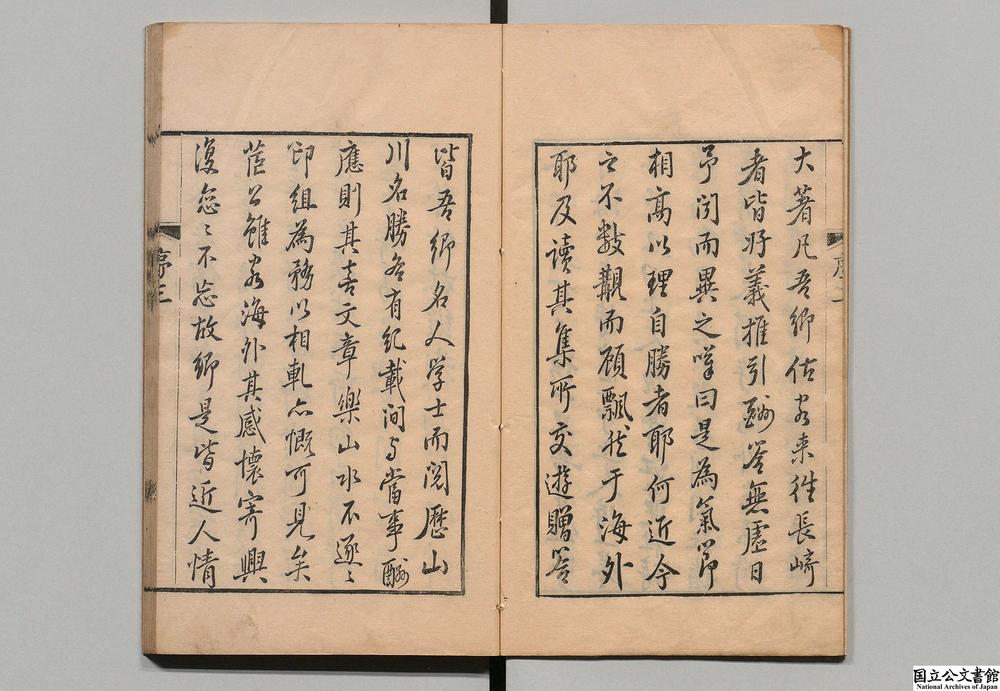 大著凡吾鄉估客来往長崎
者皆好義推引酬答無虛日
予闻而異之嘆曰是為氣節
相高以理自勝者耶何近今
之不數覯而顧飄然于海外
耶及讀其集所交遊贈答
序二
皆吾鄉名人学士而閱歷山
川名勝各有纪載间与當事酬
應則其喜文章樂山水不逐〻
印組為務以相軋亦慨可見矣
茝公雖客海外其感懷寄興
復怱〻不忘故鄉是皆近人情
序三
国立公文書館
National Archives of Japan